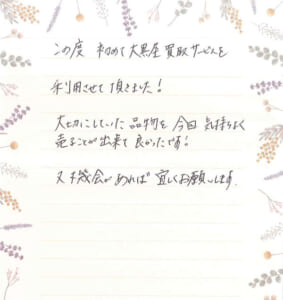 この度 初めて大黒屋買取サービスを
利用させて頂きました!
大切にしていた品物を今回気持ちよく
売ることが出来て良かったです!
又機会があれば宜しくお願いします。